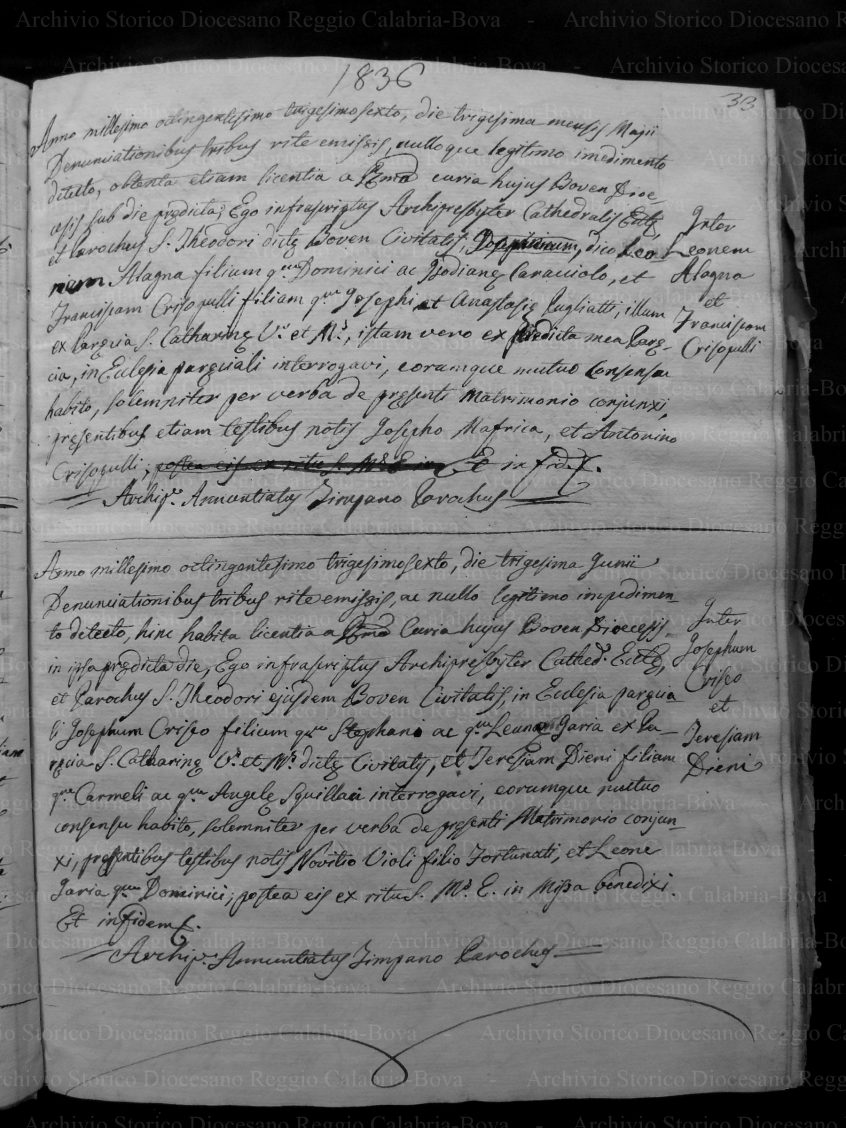 1836
33
Anno millesimo octingentesimo trigesimosexto, die trigesima mensis Maji
Denunciationibus tribus rite emissis, nulloque legitimo imedimento
detecto, obtenta etiam licentia a curia hujus Boven Dioe-
cesis sub die prędicta; Ego infrascriptus Archipresbyter Cathedralis Eccl.ę
et Parochus S. Theodori dictę Boven Civitatis, dico Leo
num Alagna filium q.m Dominici ac Caracciolo, et
Franciscam Crisopulli filiam q.m Josephi et Anastasię Pugliatti, illum
ex Paręcia S. Catharinę V.s et M.s, istam vero ex predicta mea Parę-
cia, in Ecclesia paręciali interrogavi, eorumque mutuo Consensu
habito, solemniter per verba de pręsenti Matrimonio conjunxi,
presentibus etiam testibus notis Josepho Mafrica, et Antonino
Crisopulli; postea eis ex ritu S. M.s E. in Et in fid.
Archip.r Annuntiatus Zimpano Parochus
Inter
Leonem
Alagna
et
Franciscam
Crisopulli
Anno millesimo octingentesimo trigesimosexto, die trigesima Junii
Denunciationibus tribus rite emissis, ac nullo legitimo impedimen-
to detecto, hinc habita licentia a Curia hujus Boven Dioecesis
in ipsa prędicta die, Ego infrascriptus Archipresbyter Cathed. Eccl.ę,
et Parochus S. Theodori ejusdem Boven Civitatis, in Ecclesia paręcia-
li Josephum Criseo filium q.m Stephani ac q.m Iaria ex Pa-
ręcia S. Catharinę V.s et M.s dictę Civitatis, et Teresiam Dieni filiam
q.m Carmeli ac q.m Angelę Squillaci interrogavi, eorumque mutuo
consensu habito, solemniter per verba de pręsenti Matrimonio conjun-
xi, presentibus testibus notis Novitio Violi filio Fortunati, et Leone
Iaria q.m Dominici; postea eis ex ritu S. M.s E. in Missa benedixi.
Et in fidem
Archip.r Annuntiatus Zimpano Parochus
Inter
Josephum
Criseo
et
Teresiam
Dieni
Archivio Storico Diocesano Reggio Calabria-Bova